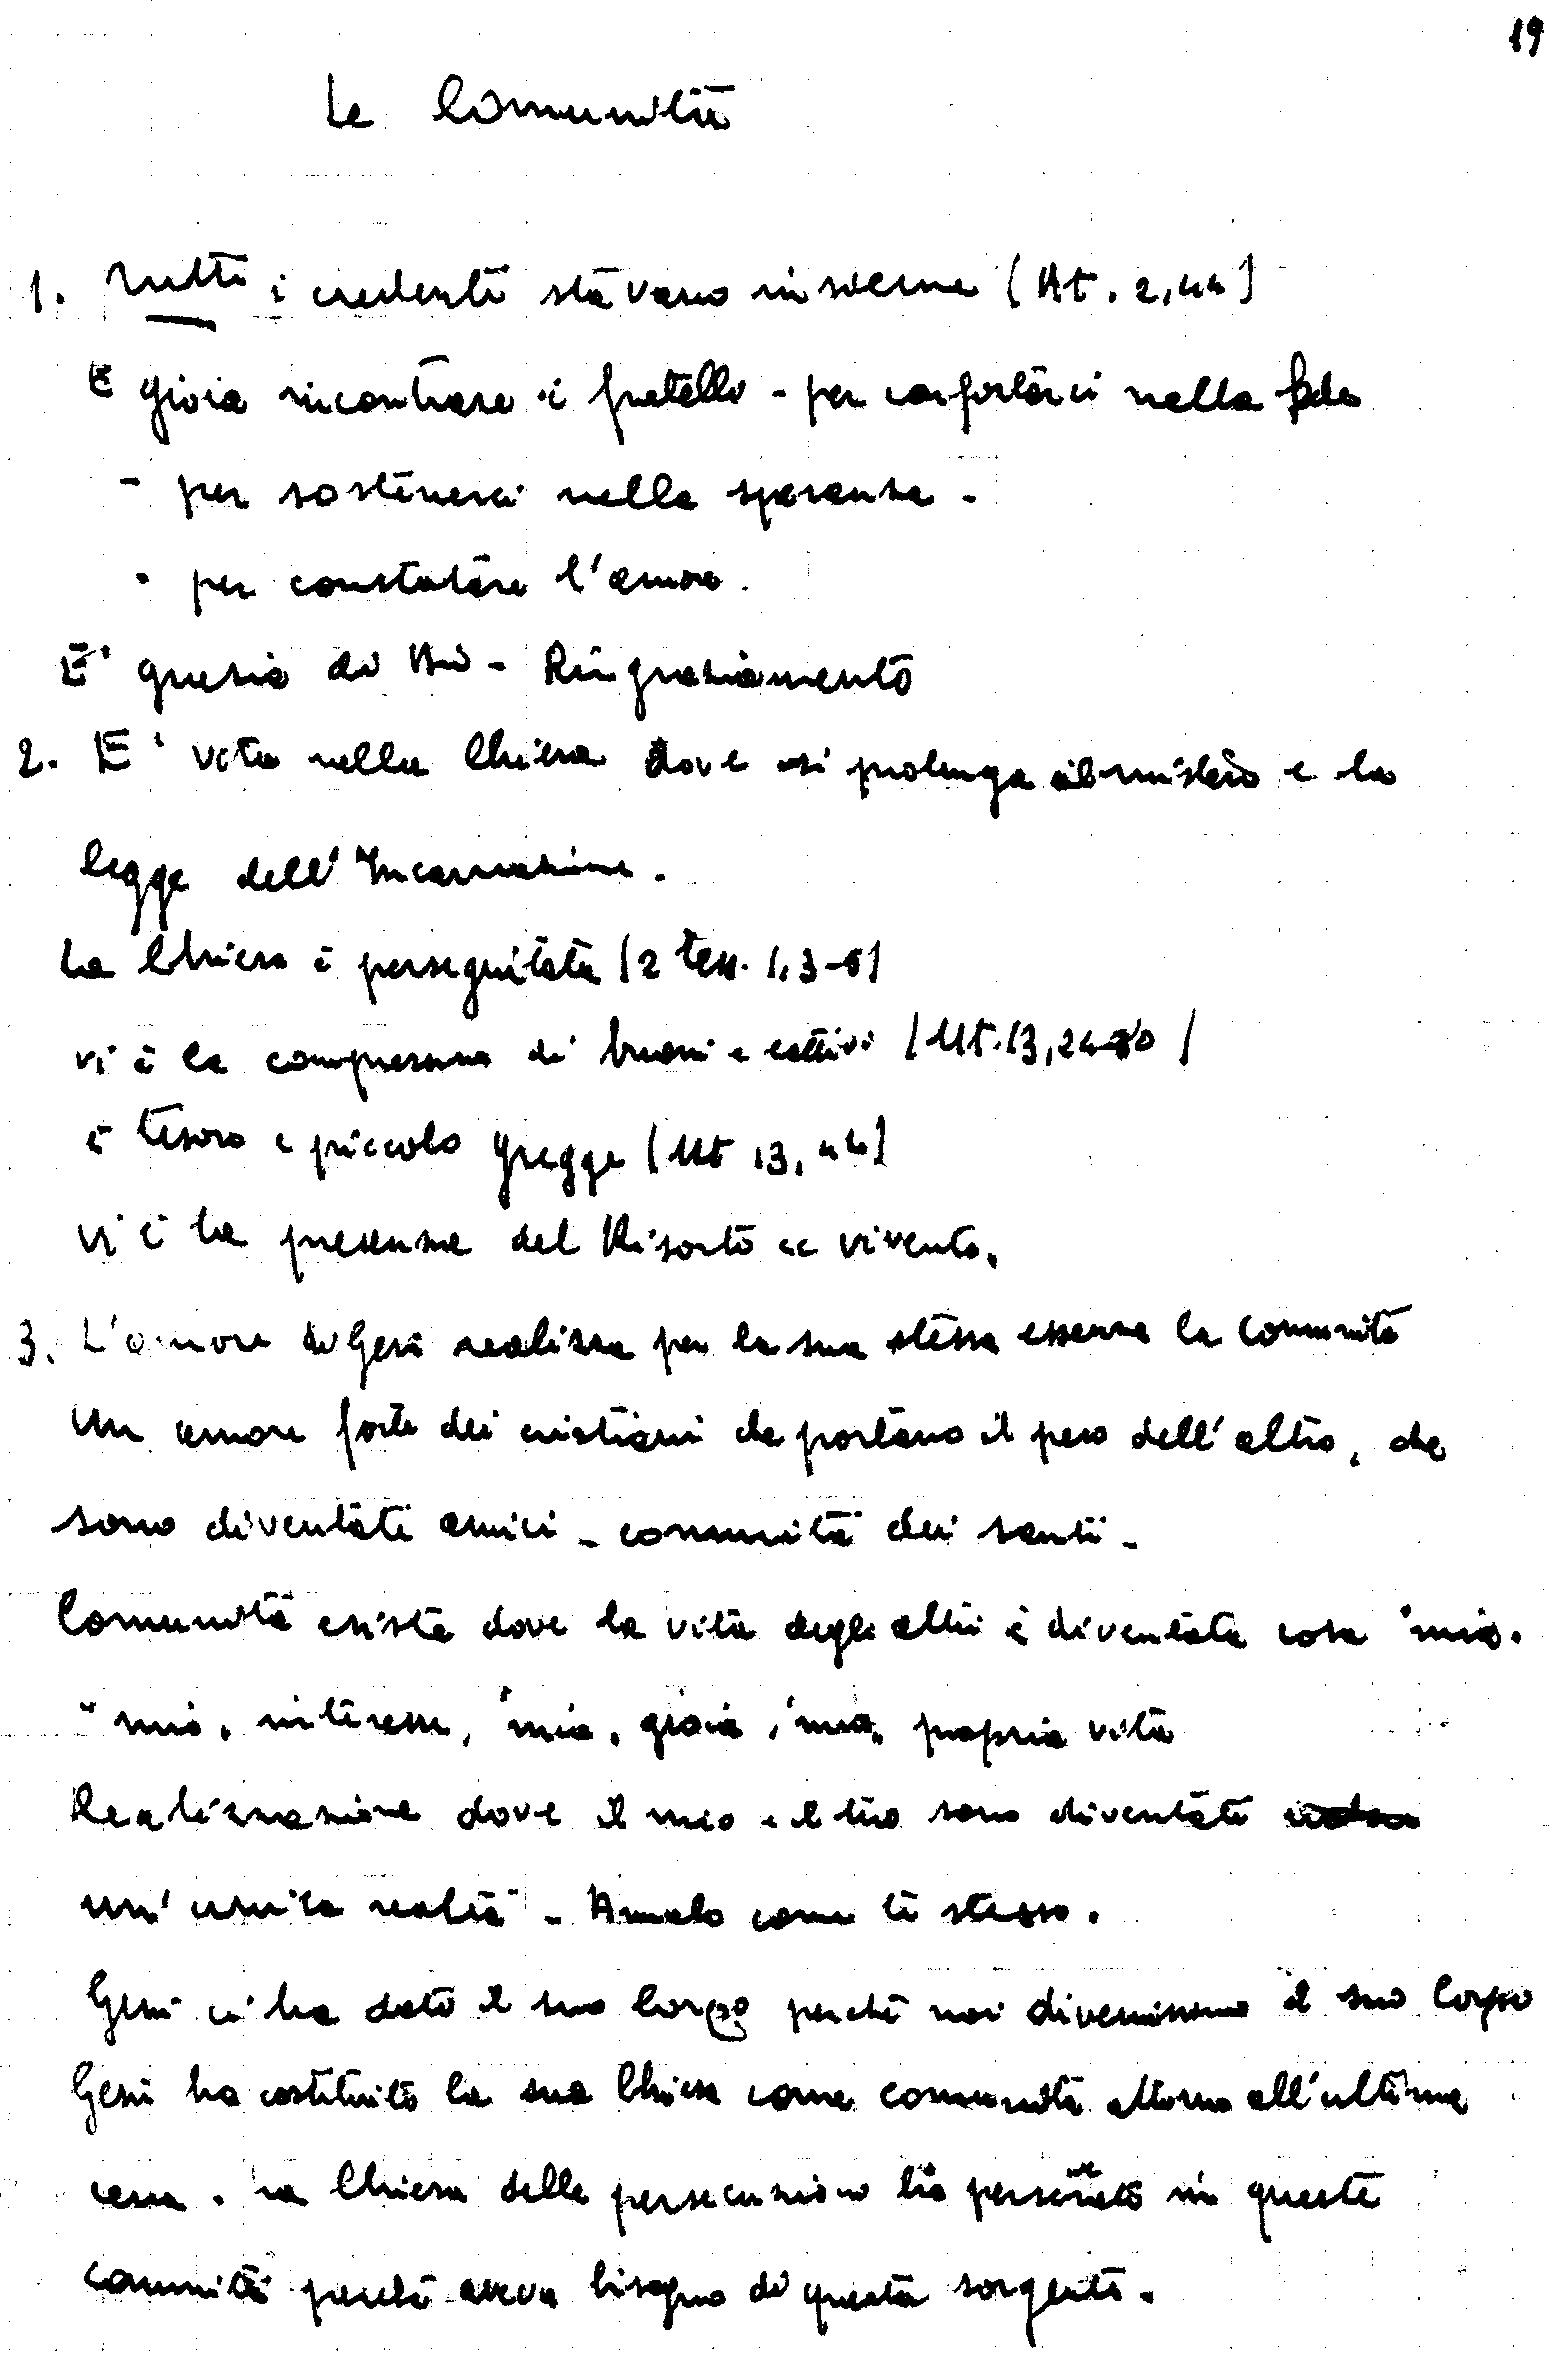 19
La Comunità
1. Tutti i credenti stavano insieme (At. 2,44)
E gioia incontrare i fratelli - per confortarci nella fede
- per sostenerci nella speranza -
- per constatare l'amore.
E' grazia di Dio - Ringraziamento
2. E' vita nella Chiesa dove si prolunga il mistero e la
legge dell'Incarnazione.
La Chiesa è perseguitata (2 Tess. 1,3-6)
vi è la compresenza di buoni e cattivi (Mt. 13,24-30)
è tesoro e piccolo gregge (Mt 13,44)
vi è la presenza del Risorto e vivente.
3. L'amore di Gesù realizza per la sua stessa essenza la comunità
Un amore forte dei cristiani che portano il peso dell'altro, che
sono diventati amici - comunità dei santi -
Comunità esiste dove la vita degli altri è diventata cosa "mia"
"mio" interesse, "mia" gioia, "mia" propria vita
Realizzazione dove il mio e il tuo sono diventati
un'unica realtà - Amalo come te stesso.
Gesù ci ha dato il suo Corpo perché noi divenissimo il suo Corpo
Gesù ha costituito la sua Chiesa come comunità attorno all'ultima
cena. La Chiesa delle persecuzioni ha perseverato in queste
comunità perché aveva bisogno di questa sorgente.